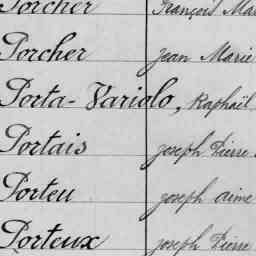 Porcher François Mar
Porcher Jean Marie
Porta-Variolo, Raphaël
Portais Joseph Pierre
Porteu Joseph aimé
Porteux Joseph Pierre